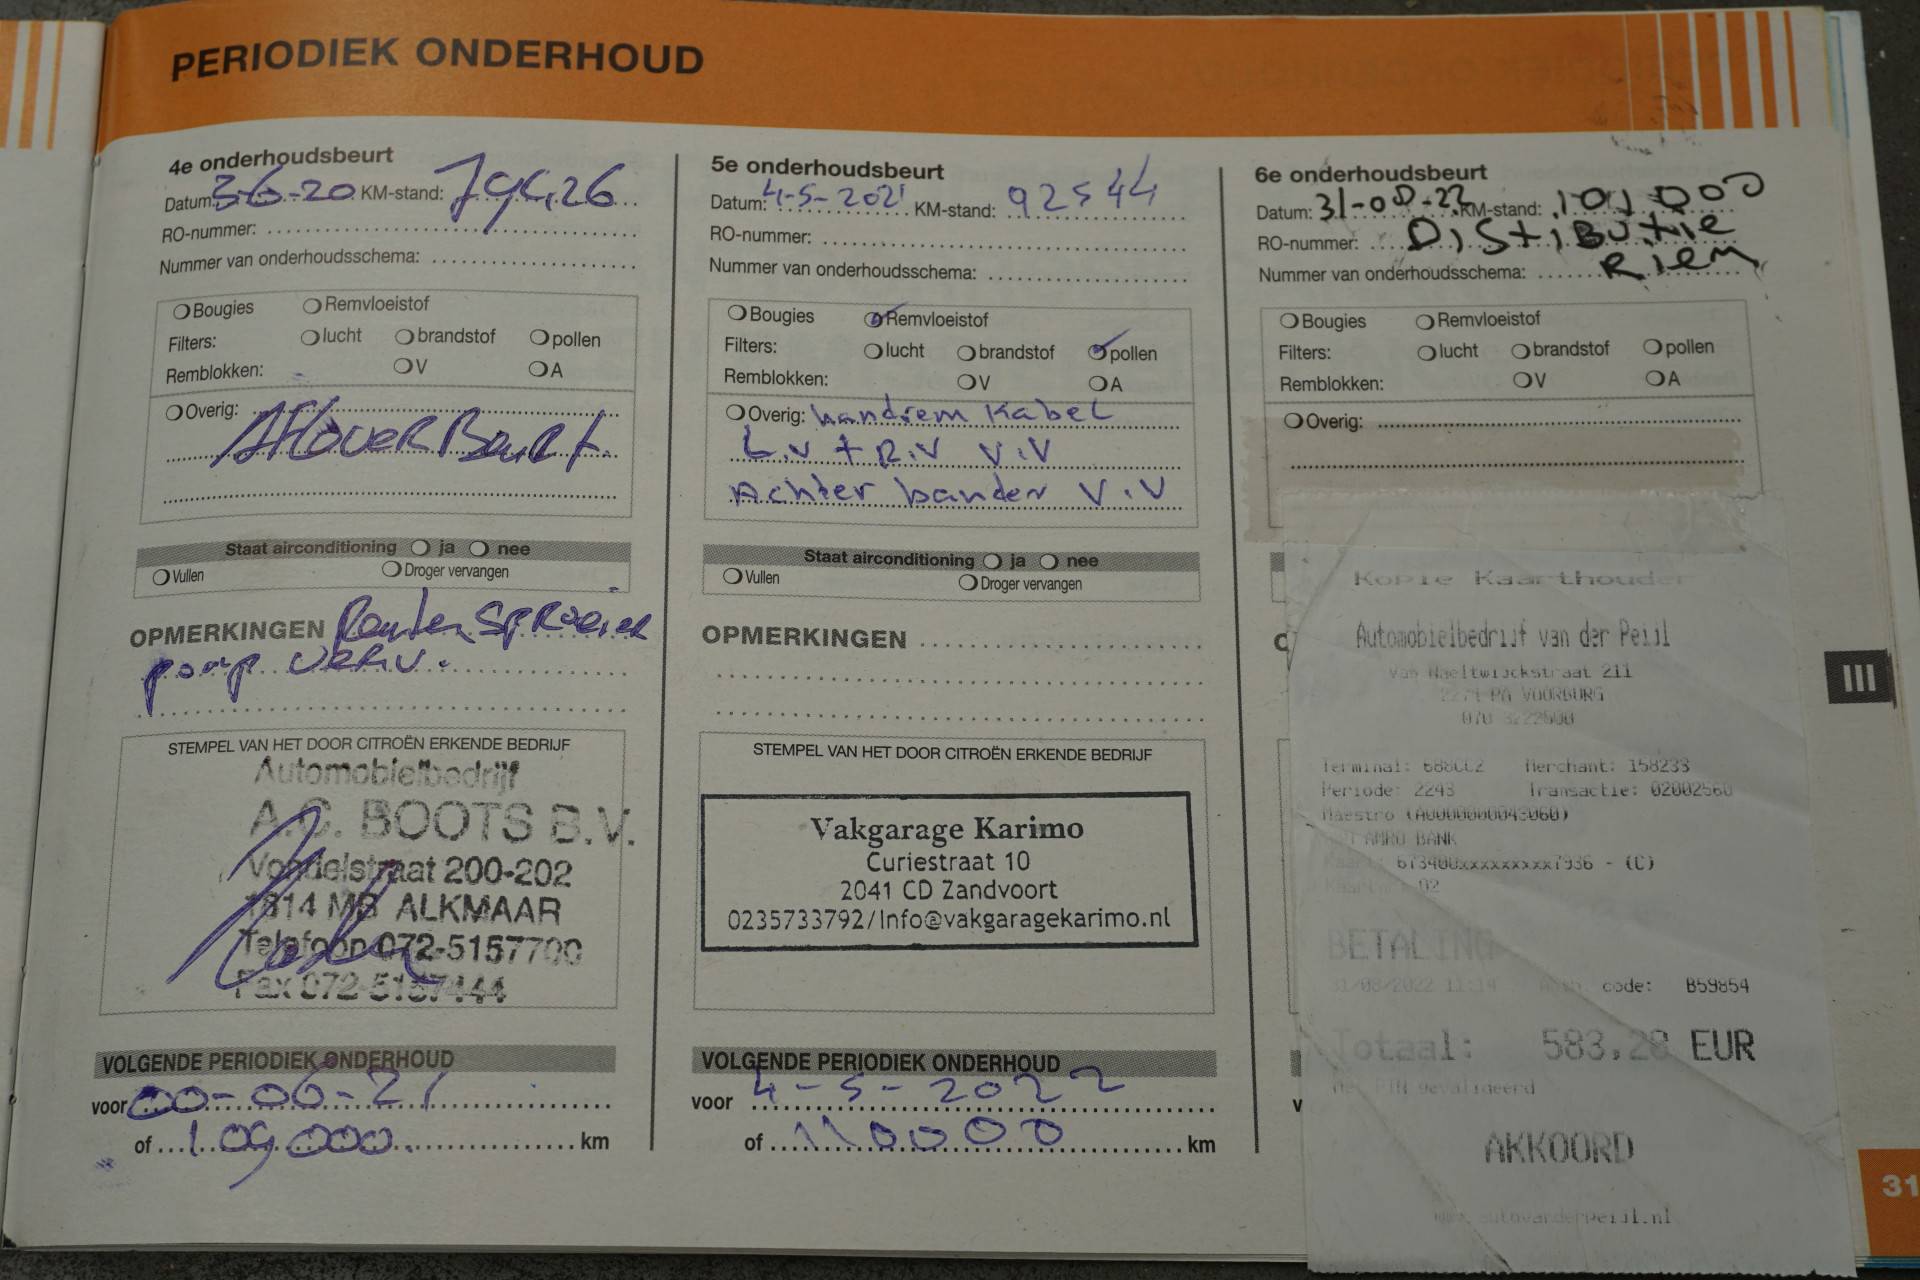 PERIODIEK ONDERHOUD
4e onderhoudsbeurt
Datum: 3-6-20 KM-stand:
RO-nummer:
Nummer van onderhoudsschema:
Bougies Remvloeistof
Filters: lucht brandstof pollen
Remblokken: V A
Overig:
Afleverbeurt.
Staat airconditioning ja nee
Vullen Droger vervangen
OPMERKINGEN Ruitensproeier
pomp verv.
STEMPEL VAN HET DOOR CITROËN ERKENDE BEDRIJF
Automobielbedrijf
A.C. BOOTS B.V.
Vondelstraat 200-202
1814 MB ALKMAAR
Telefoon 072-5157700
Fax 072-5157444
VOLGENDE PERIODIEK ONDERHOUD
voor 00-06-21
of 109.000 km
5e onderhoudsbeurt
Datum: 4-5-2021 KM-stand: 92544
RO-nummer:
Nummer van onderhoudsschema:
Bougies Remvloeistof
Filters: lucht brandstof pollen
Remblokken: V A
Overig: handrem Kabel
L.V + R.V V.V
Achter banden V.V
Staat airconditioning ja nee
Vullen Droger vervangen
OPMERKINGEN
STEMPEL VAN HET DOOR CITROËN ERKENDE BEDRIJF
Vakgarage Karimo
Curiestraat 10
2041 CD Zandvoort
0235733792/Info@vakgaragekarimo.nl
VOLGENDE PERIODIEK ONDERHOUD
voor 4-5-2022
of 110000 km
6e onderhoudsbeurt
Datum: 31-08-22 KM-stand: 101000
RO-nummer: DistiButie
Nummer van onderhoudsschema: Riem
Bougies Remvloeistof
Filters: lucht brandstof pollen
Remblokken: V A
Overig:
Kopie Kaarthouder
Automobielbedrijf van der Peijl
Van Naeltwijckstraat 211
2271 PA VOORBURG
070 3222500
Terminal: Merchant: 158233
Periode: 2243 Transactie: 02002560
Maestro (A0000000043060)
AMRO BANK
Kaart: 673400xxxxxxxxx7936 - (C)
02
BETALING
31/08/2022 11:14 code: B59854
Totaal: 583,28 EUR
Met PIN gevalideerd
AKKOORD
www.autovanderpeijl.nl
III
31